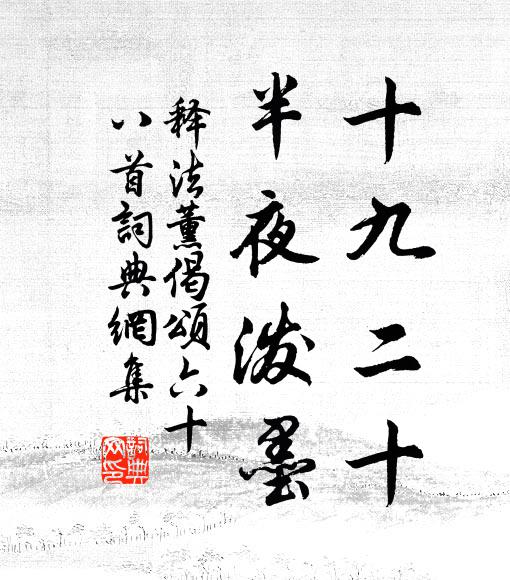 十九二十
半夜泼墨
释法薰偈頌六十
八首詞典網集
詞典网印